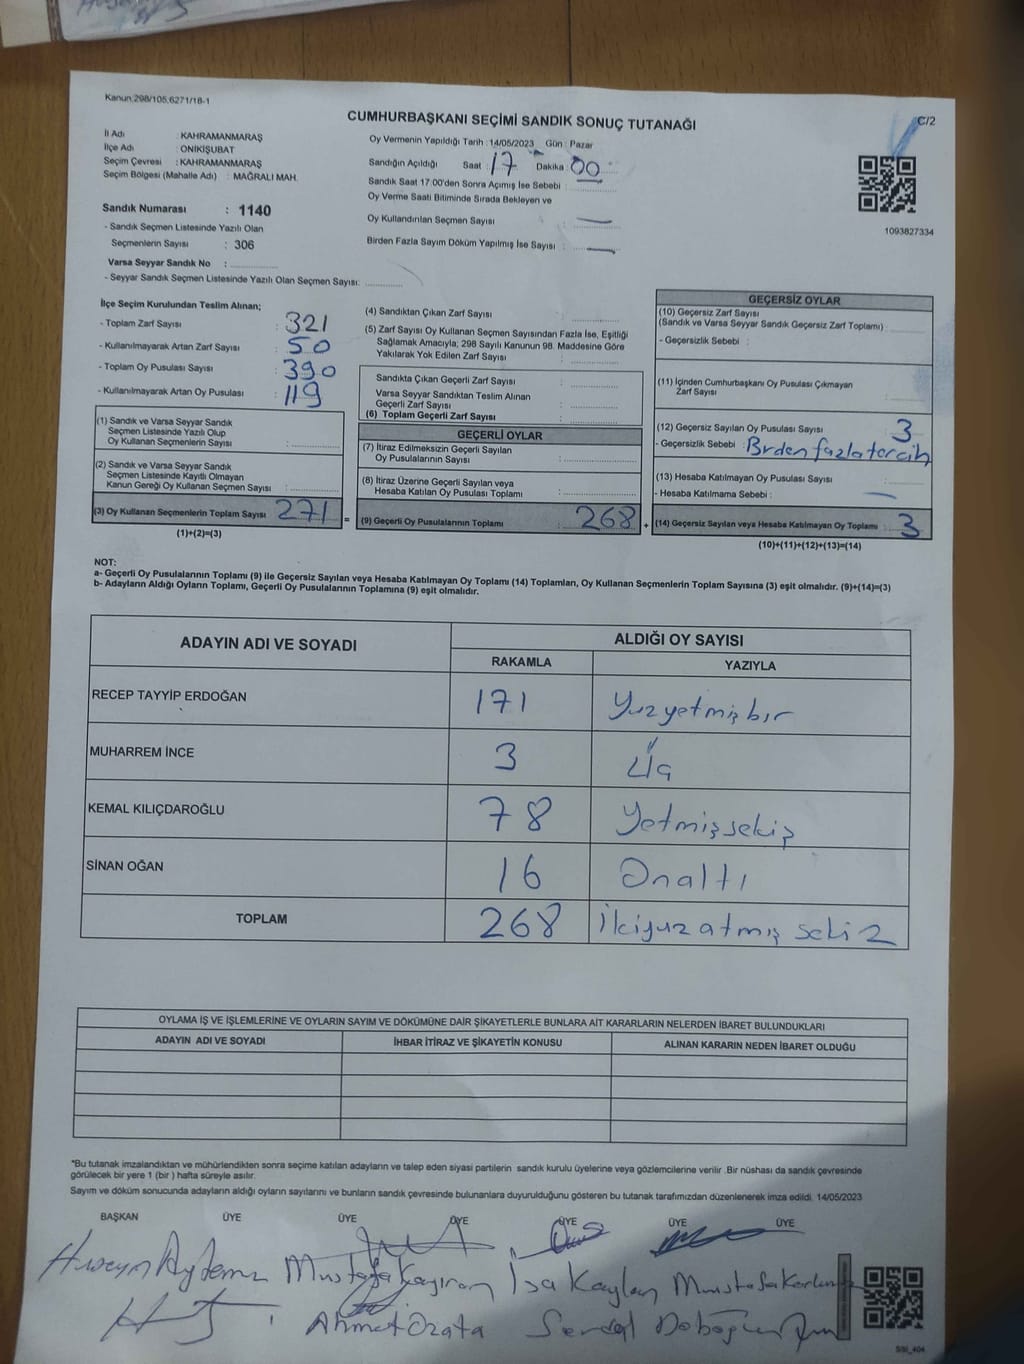 Kanun:298/105,6271/18-1
CUMHURBAŞKANI SEÇİMİ SANDIK SONUÇ TUTANAĞI
C/2
İl Adı : KAHRAMANMARAŞ
İlçe Adı : ONİKİŞUBAT
Seçim Çevresi : KAHRAMANMARAŞ
Seçim Bölgesi (Mahalle Adı) : MAĞRALI MAH.
Oy Vermenin Yapıldığı Tarih :14/05/2023 Gün : Pazar
Sandığın Açıldığı Saat : 17 Dakika : 00
Sandık Saat 17:00'den Sonra Açımış İse Sebebi :
Oy Verme Saati Bitiminde Sırada Bekleyen ve
Oy Kullandırılan Seçmen Sayısı : —
Birden Fazla Sayım Döküm Yapılmış İse Sayısı : —
1093827334
Sandık Numarası : 1140
- Sandık Seçmen Listesinde Yazılı Olan
Seçmenlerin Sayısı : 306
Varsa Seyyar Sandık No :
- Seyyar Sandık Seçmen Listesinde Yazılı Olan Seçmen Sayısı:
İlçe Seçim Kurulundan Teslim Alınan;
- Toplam Zarf Sayısı : 321
- Kullanılmayarak Artan Zarf Sayısı : 50
- Toplam Oy Pusulası Sayısı : 390
- Kullanılmayarak Artan Oy Pusulası : 119
(1) Sandık ve Varsa Seyyar Sandık
Seçmen Listesinde Yazılı Olup
Oy Kullanan Seçmenlerin Sayısı :
(2) Sandık ve Varsa Seyyar Sandık
Seçmen Listesinde Kayıtlı Olmayan
Kanun Gereği Oy Kullanan Seçmen Sayısı :
(3) Oy Kullanan Seçmenlerin Toplam Sayısı : 271
(1)+(2)=(3)
(4) Sandıktan Çıkan Zarf Sayısı :
(5) Zarf Sayısı Oy Kullanan Seçmen Sayısından Fazla İse, Eşitliği
Sağlamak Amacıyla; 298 Sayılı Kanunun 98. Maddesine Göre
Yakılarak Yok Edilen Zarf Sayısı :
Sandıkta Çıkan Geçerli Zarf Sayısı :
Varsa Seyyar Sandıktan Teslim Alınan
Geçerli Zarf Sayısı :
(6) Toplam Geçerli Zarf Sayısı :
GEÇERLİ OYLAR
(7) İtiraz Edilmeksizin Geçerli Sayılan
Oy Pusulalarının Sayısı :
(8) İtiraz Üzerine Geçerli Sayılan veya
Hesaba Katılan Oy Pusulası Toplamı :
= (9) Geçerli Oy Pusulalarının Toplamı : 268
GEÇERSİZ OYLAR
(10) Geçersiz Zarf Sayısı
(Sandık ve Varsa Seyyar Sandık Geçersiz Zarf Toplamı) :
- Geçersizlik Sebebi :
(11) İçinden Cumhurbaşkanı Oy Pusulası Çıkmayan
Zarf Sayısı :
(12) Geçersiz Sayılan Oy Pusulası Sayısı : 3
- Geçersizlik Sebebi : Birden fazla tercih
(13) Hesaba Katılmayan Oy Pusulası Sayısı :
- Hesaba Katılmama Sebebi : —
+ (14) Geçersiz Sayılan veya Hesaba Katılmayan Oy Toplamı : 3
(10)+(11)+(12)+(13)=(14)
NOT:
a- Geçerli Oy Pusulalarının Toplamı (9) ile Geçersiz Sayılan veya Hesaba Katılmayan Oy Toplamı (14) Toplamları, Oy Kullanan Seçmenlerin Toplam Sayısına (3) eşit olmalıdır. (9)+(14)=(3)
b- Adayların Aldığı Oyların Toplamı, Geçerli Oy Pusulalarının Toplamına (9) eşit olmalıdır.
ADAYIN ADI VE SOYADI ALDIĞI OY SAYISI
RAKAMLA YAZIYLA
RECEP TAYYİP ERDOĞAN 171 Yüzyetmişbir
MUHARREM İNCE 3 Üç
KEMAL KILIÇDAROĞLU 78 Yetmişsekiz
SİNAN OĞAN 16 Onaltı
TOPLAM 268 İkiyüzatmış sekiz
OYLAMA İŞ VE İŞLEMLERİNE VE OYLARIN SAYIM VE DÖKÜMÜNE DAİR ŞİKAYETLERLE BUNLARA AİT KARARLARIN NELERDEN İBARET BULUNDUKLARI
ADAYIN ADI VE SOYADI İHBAR İTİRAZ VE ŞİKAYETİN KONUSU ALINAN KARARIN NEDEN İBARET OLDUĞU
*Bu tutanak imzalandıktan ve mühürlendikten sonra seçime katılan adayların ve talep eden siyasi partilerin sandık kurulu üyelerine veya gözlemcilerine verilir .Bir nüshası da sandık çevresinde
görülecek bir yere 1 (bir ) hafta süreyle asılır.
Sayım ve döküm sonucunda adayların aldığı oyların sayılarını ve bunların sandık çevresinde bulunanlara duyurulduğunu gösteren bu tutanak tarafımızdan düzenlenerek imza edildi. 14/05/2023
BAŞKAN ÜYE ÜYE ÜYE ÜYE ÜYE ÜYE
Hüseyin Aydemir Mustafa Kayıran İsa Kaylan Mustafa
Ahmet Özata Serdal
SSI_404